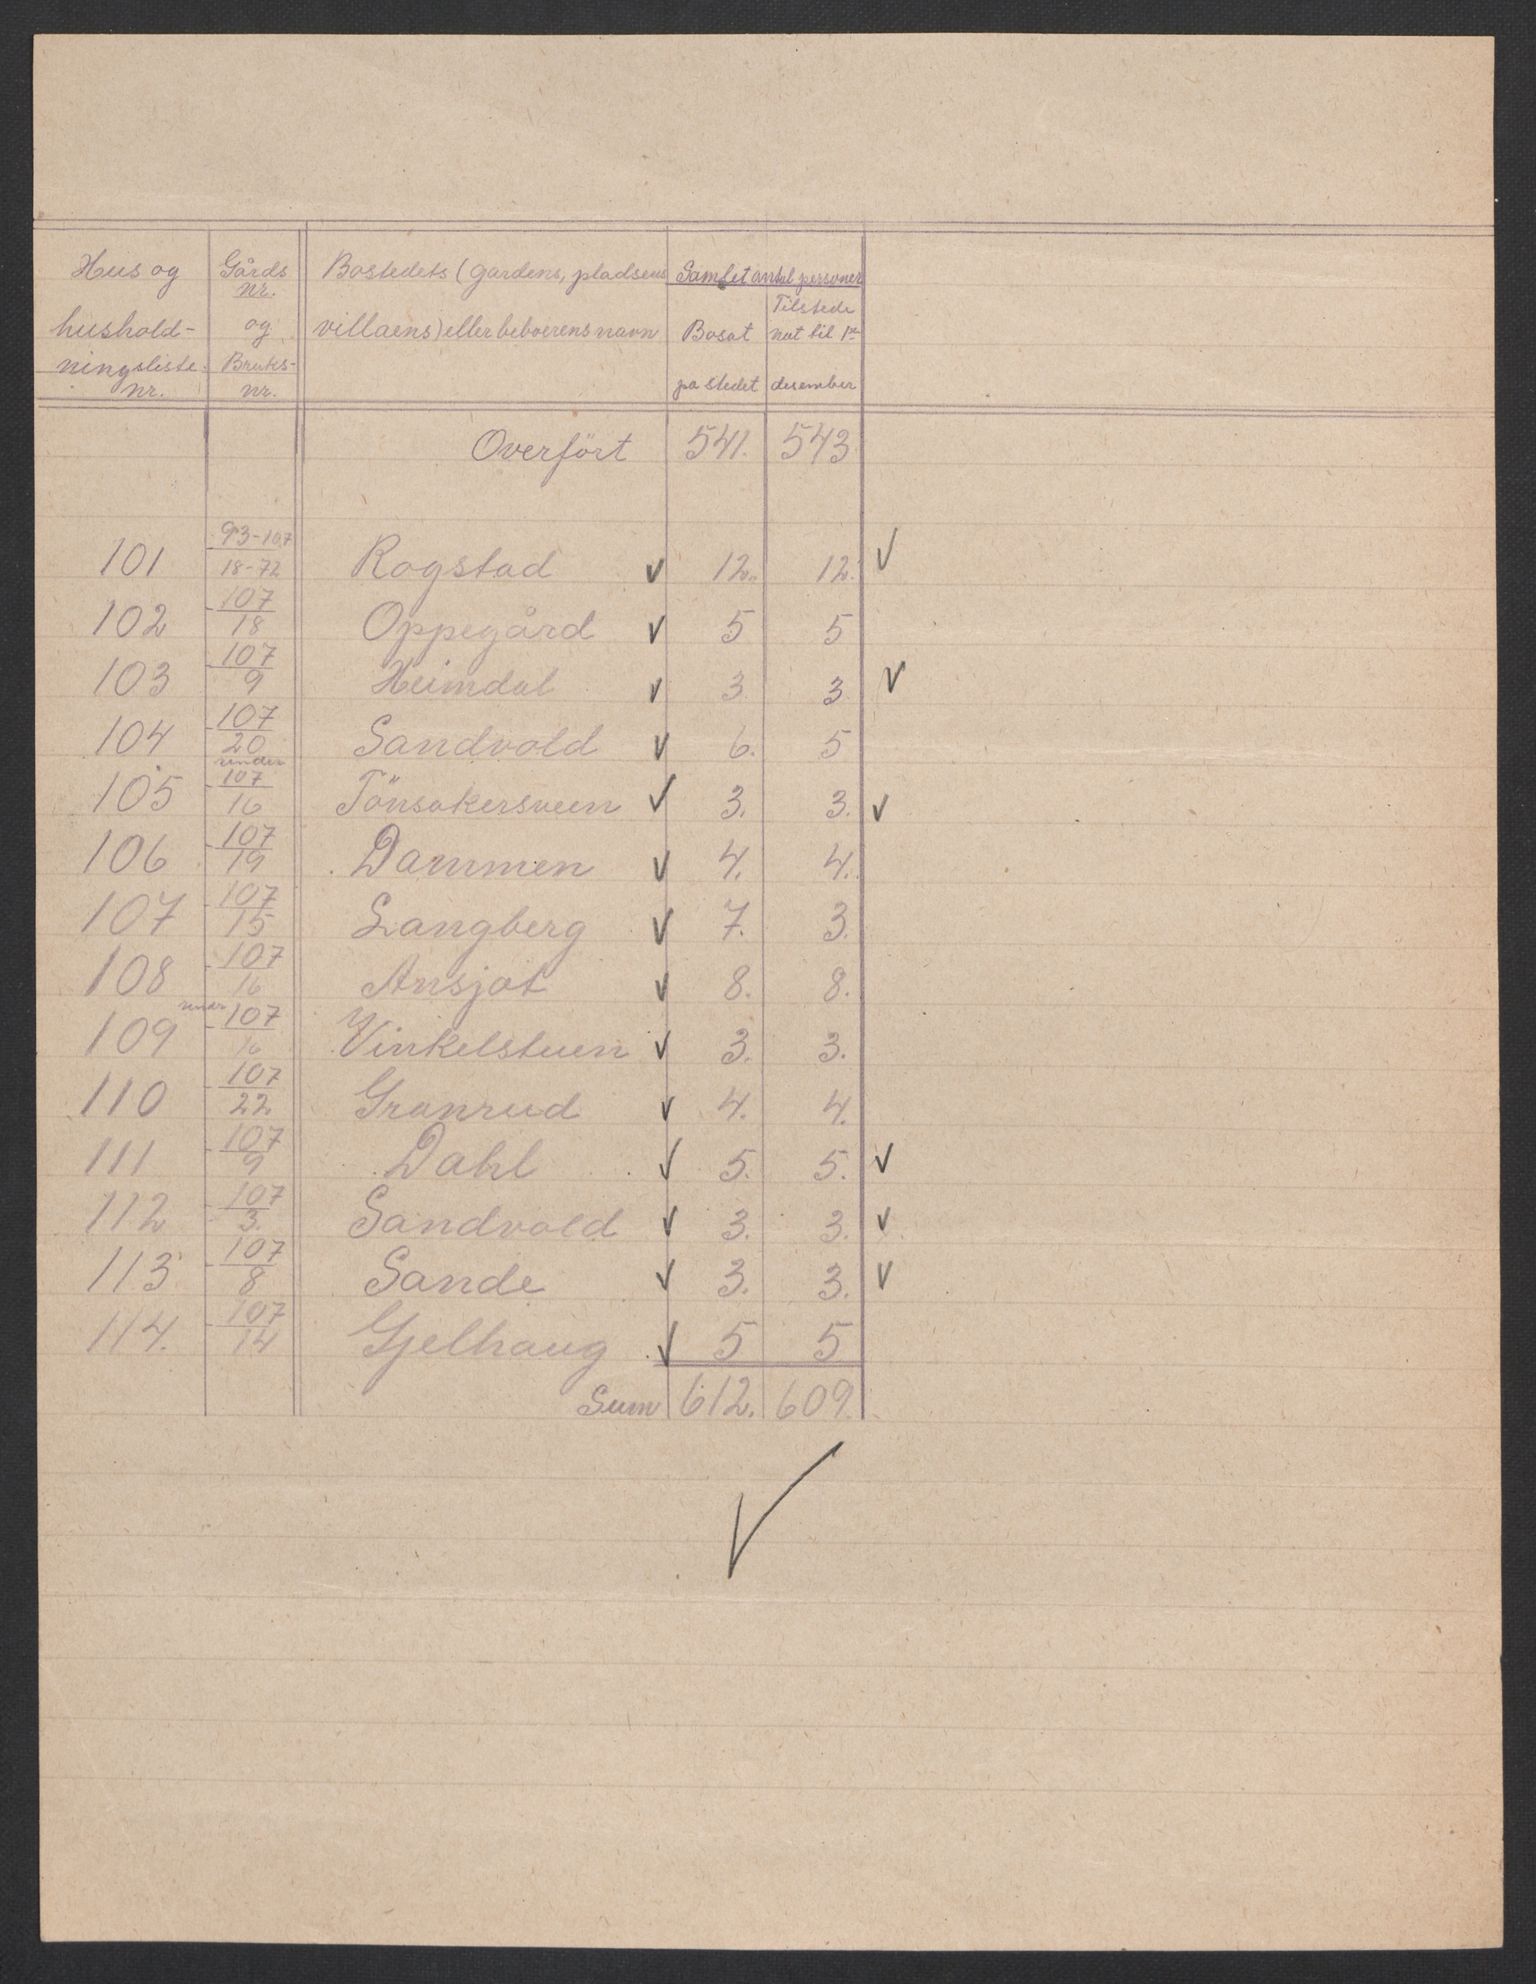 Hus og
hushold-
ningsliste
nr.
Gårds
nr.
og
Bruks-
nr.
Bostedets (gardens, pladsens
villaens) eller beboerens navn
Samlet antal personer
Bosat
pa stedet
Tilstede
nat til 1st
desember
Overfört 541. 543
101 93-107/18-72 Rogstad ✓ 12. 12. ✓
102 107/18 Oppegård ✓ 5 5
103 107/9 Heimdal ✓ 3 3 ✓
104 107/20 Sandvold ✓ 6. 5
105 under 107/16 Tönsakersveen ✓ 3. 3. ✓
106 107/19 Dammen ✓ 4. 4.
107 107/15 Langberg ✓ 7. 3.
108 107/16 Ansjøt ✓ 8. 8.
109 under 107/16 Vinkelstuen ✓ 3. 3.
110 107/22 Granrud ✓ 4. 4.
111 107/9 Dahl ✓ 5. 5. ✓
112 107/3. Sandvold ✓ 3. 3. ✓
113 107/8 Sande ✓ 3. 3. ✓
114. 107/14 Gjelhaug ✓ 5 5
Sum 612. 609.
✓